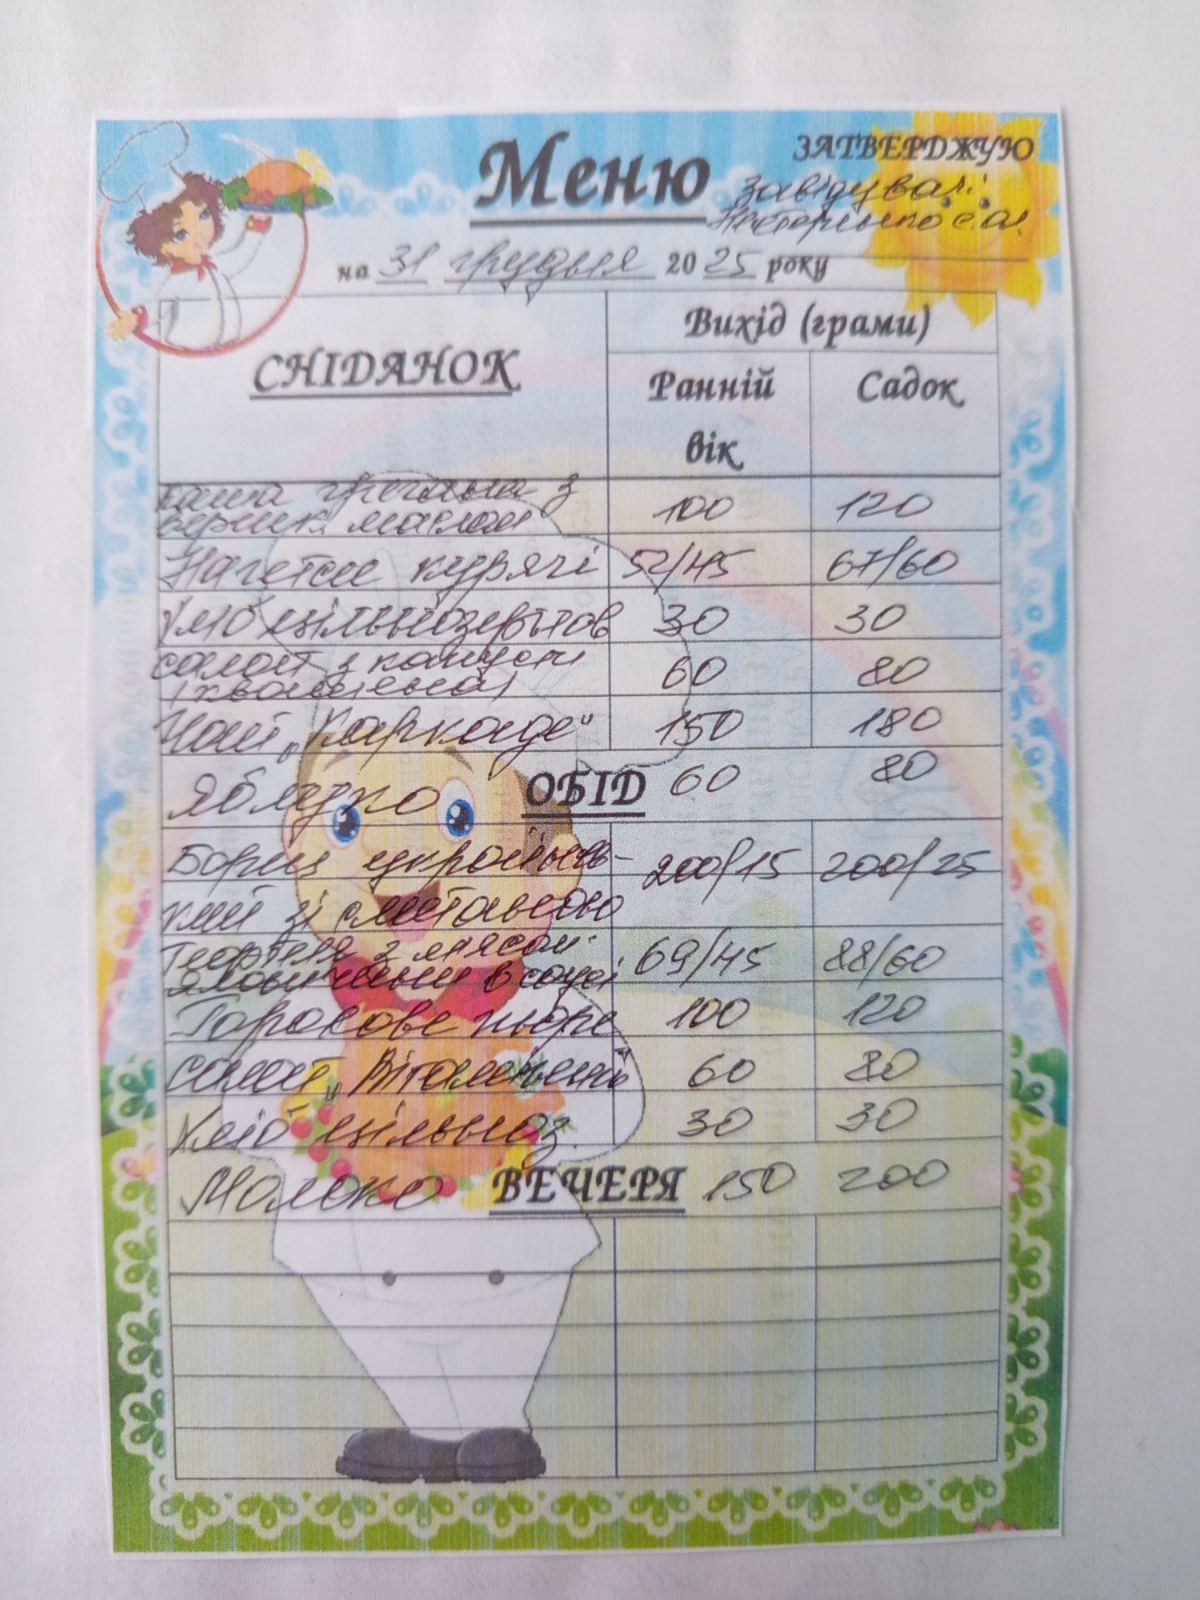 Меню
ЗАТВЕРДЖУЮ
Завідувач:
на 31 грудня 2025 року
СНІДАНОК
Вихід (грами)
Ранній вік
Садок
Каша гречана з 100 120
вершк. маслом
Нагетси курячі 52/45 67/60
Хліб цільнозернов 30 30
салат з капусти 60 80
(квашена)
Чай „Каркаде" 150 180
Яблуко ОБІД 60 80
Борщ українсь- 200/15 200/25
кий зі сметаною
з м'ясом 69/45 88/60
яловичим в соусі
Горохове пюре 100 120
салат „Вітамінний" 60 80
Хліб цільноз. 30 30
Молоко ВЕЧЕРЯ 150 200